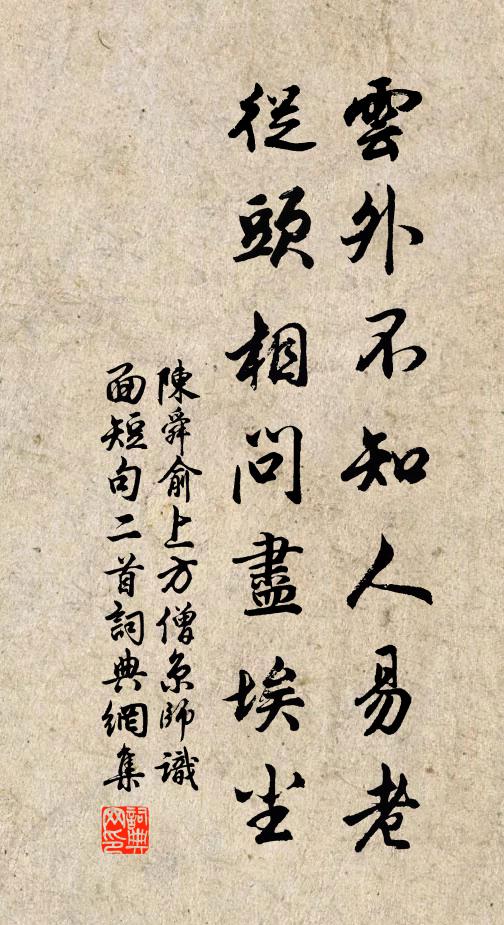 雲外不知人易老
從頭相問盡埃尘
陳舜俞上方僧京師識
面短句二首詞典網集
詞典
网印